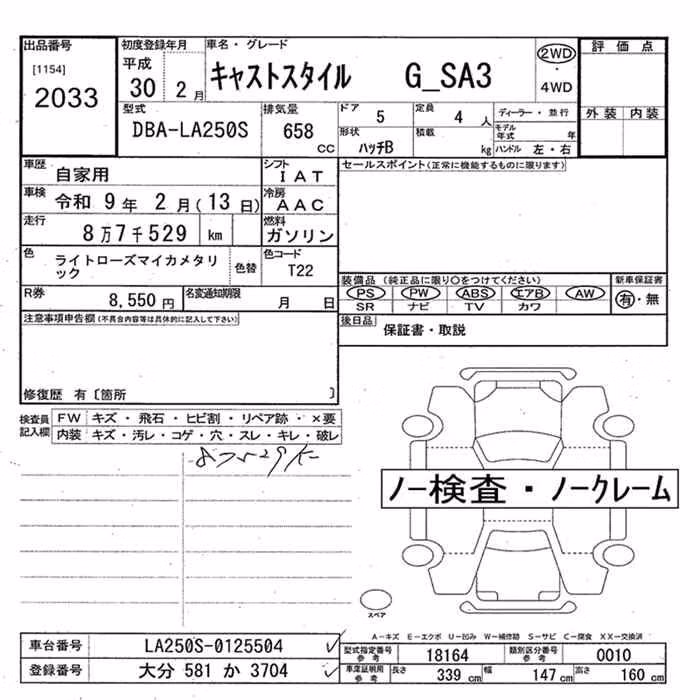 出品番号
[1154]
2033
初度登録年月
平成
30 2 月
車名・グレード
キャストスタイル G_SA3
2WD
・
4WD
評価点
外装 内装
型式
DBA-LA250S
排気量
658 CC
ドア 5
定員 4 人
形状 ハッチB
積載 kg
ディーラー・並行
モデル年式 年
ハンドル 左・右
車歴 自家用
シフト IAT
車検 令和 9 年 2 月(13 日)
冷房 AAC
走行 8万7千529 km
燃料 ガソリン
色 ライトローズマイカメタリック
色替
色コード T22
R券 8,550 円
名変通知期限 月 日
セールスポイント(正常に機能するものに限ります)
装備品(純正品に限り○をつけてください)
PS PW ABS エアB AW
SR ナビ TV カワ
新車保証書
有・無
後日品 保証書・取説
注意事項申告欄(不具合内容等は具体的に記入して下さい)
修復歴 有〔箇所 〕
検査員記入欄
FW キズ・飛石・ヒビ割・リペア跡・×要
内装 キズ・汚レ・コゲ・穴・スレ・キレ・破レ
ノー検査・ノークレーム
スペア
A-キズ E-エクボ U-凹み W-補修跡 S-サビ C-腐食 XX-交換済
車台番号 LA250S-0125504
登録番号 大分 581 か 3704
型式指定番号 参考 18164
類別区分番号 参考 0010
車庫証明用 参考 長さ 339 cm 幅 147 cm 高さ 160 cm